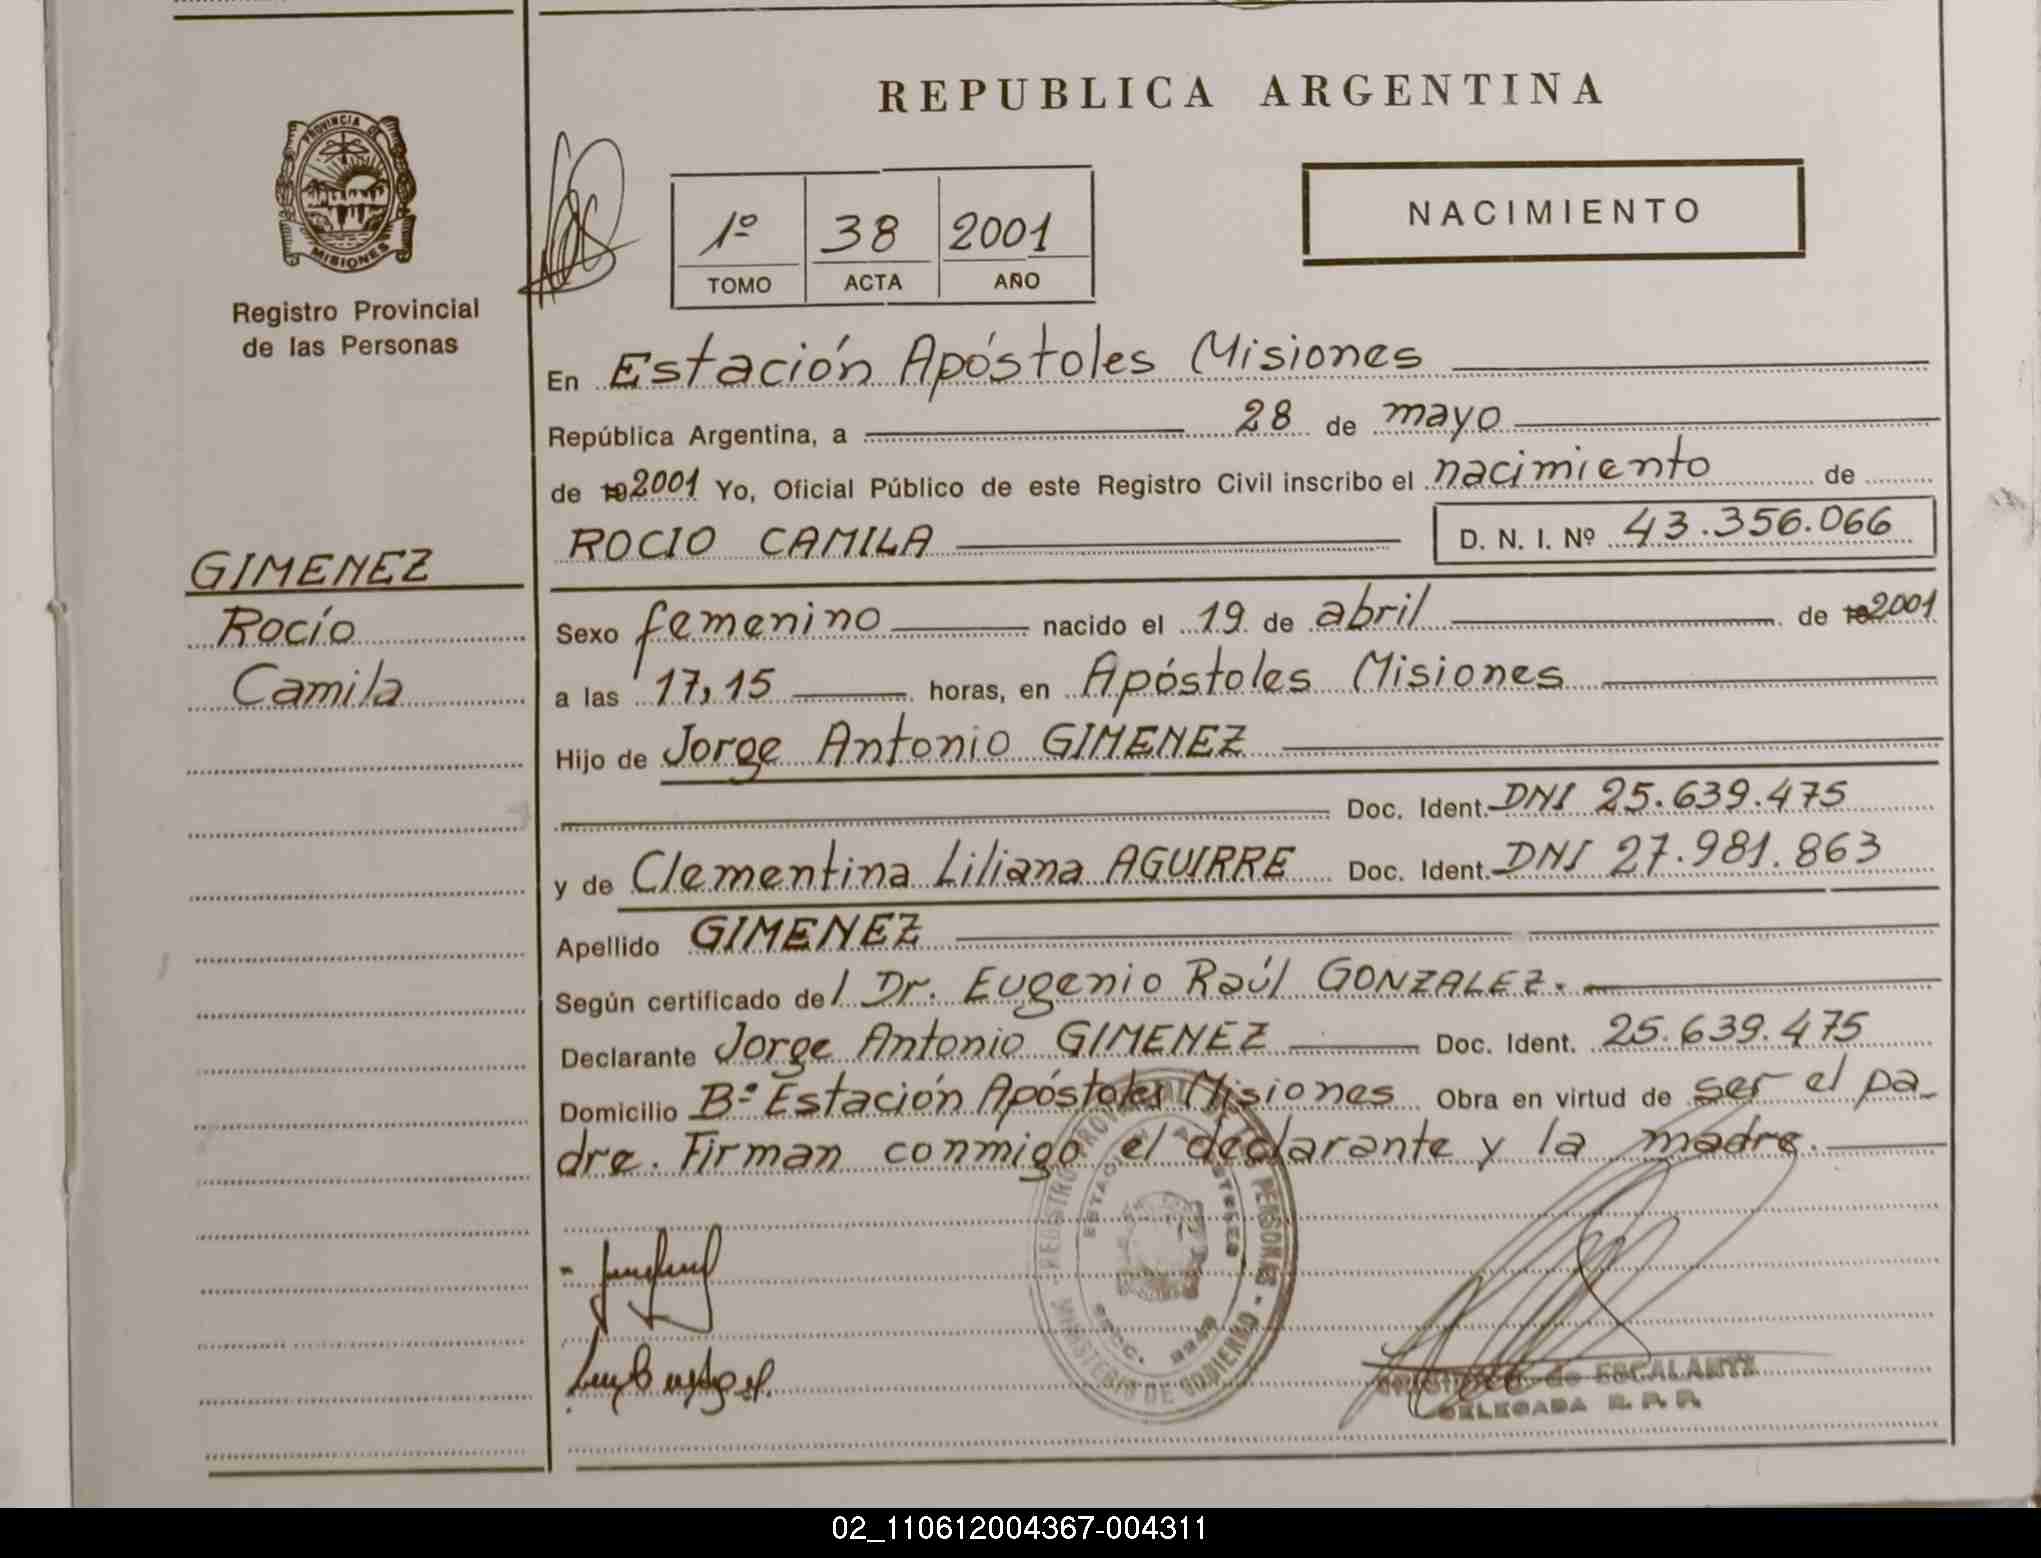 REPUBLICA ARGENTINA
PROVINCIA DE
MISIONES
Registro Provincial
de las Personas
1º 38 2001
TOMO ACTA AÑO
NACIMIENTO
En Estación Apóstoles Misiones
República Argentina, a 28 de mayo
de 19 2001 Yo, Oficial Público de este Registro Civil inscribo el nacimiento de
ROCIO CAMILA D. N. I. Nº 43.356.066
GIMENEZ
Rocío
Camila
Sexo femenino nacido el 19 de abril de 19 2001
a las 17,15 horas, en Apóstoles Misiones
Hijo de Jorge Antonio GIMENEZ
Doc. Ident. DNI 25.639.475
y de Clementina Liliana AGUIRRE Doc. Ident. DNI 27.981.863
Apellido GIMENEZ
Según certificado del Dr. Eugenio Raúl GONZALEZ.
Declarante Jorge Antonio GIMENEZ Doc. Ident. 25.639.475
Domicilio Bº Estación Apóstoles Misiones Obra en virtud de ser el pa-
dre. Firman conmigo el declarante y la madre.
REGISTRO PROVINCIAL PERSONAS - MINISTERIO DE GOBIERNO
ESTACION
de ESCALANTE
DELEGADA R. P. P.
02_110612004367-004311